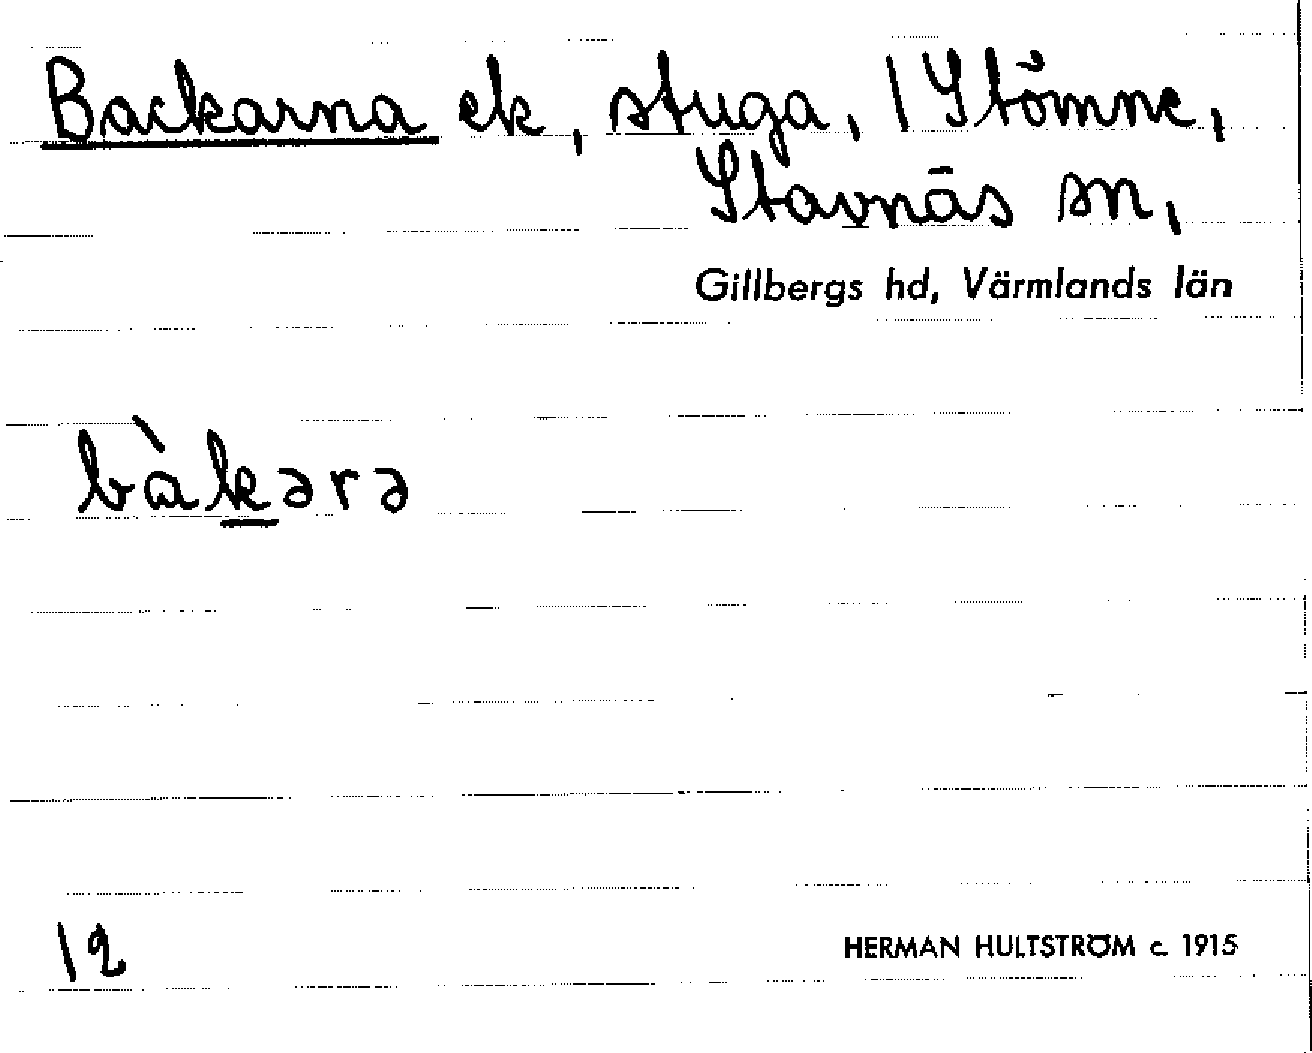 Backarna ek, stuga, 1 Stömne,
Stavnäs sn,
Gillbergs hd, Värmlands län
bàkərə
12
HERMAN HULTSTRÖM c. 1915